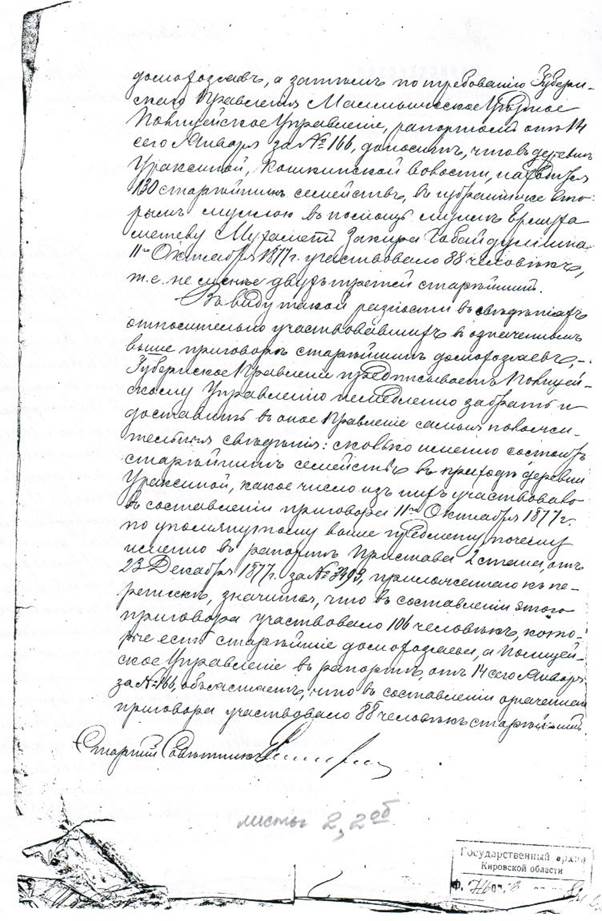 домохозяевъ, а затѣмъ по требованiю Губерн-
скаго Правленiя Малмыжское Уѣздное
Полицейское Управленiе, рапортомъ отъ 14
сего Января за № 166, доноситъ, что въ деревнѣ
Ураксиной, Кошкинской волости, находится
130 старѣйшихъ семействъ, въ
муллою въ помощь муллѣ
Мухамети Закира Габайдуллина
11го Октября 1877 г. участвовало 88 человѣкъ,
т. е. не менѣе двухъ третей старѣйшинъ.
Въ виду такой разности въ свѣдѣнiяхъ
относительно участвовавшихъ въ означенномъ
выше приговорѣ старѣйшихъ домохозяевъ,
Губернское Правленiе предписываетъ Полицей-
скому Управленiю немедленно забрать и
доставить въ оное Правленiе самыя положи-
тельныя свѣдѣнiя: сколько именно состоитъ
старѣйшихъ семействъ въ приходѣ деревни
Ураксиной, какое число изъ нихъ участвовало
въ составленiи приговора 11го Октября 1877 г.
по упомянутому выше предмету, почему
именно въ рапортѣ Пристава 2 стана, отъ
23 Декабря 1877 г. за № 3493, приложенномъ къ пе-
репискѣ, значится, что въ составленiи этого
приговора участвовало 106 человѣкъ, кото-
рые есть старѣйшiе домохозяева, а Полицей-
ское Управленiе въ рапортѣ, отъ 14 сего Января
за № 166, объясняетъ, что въ составленiи означеннаго
приговора участвовало 88 человѣкъ старѣйшинъ.
Старшiй Совѣтникъ
листы 2, 2об
Государственный архив
Кировской области
Ф.